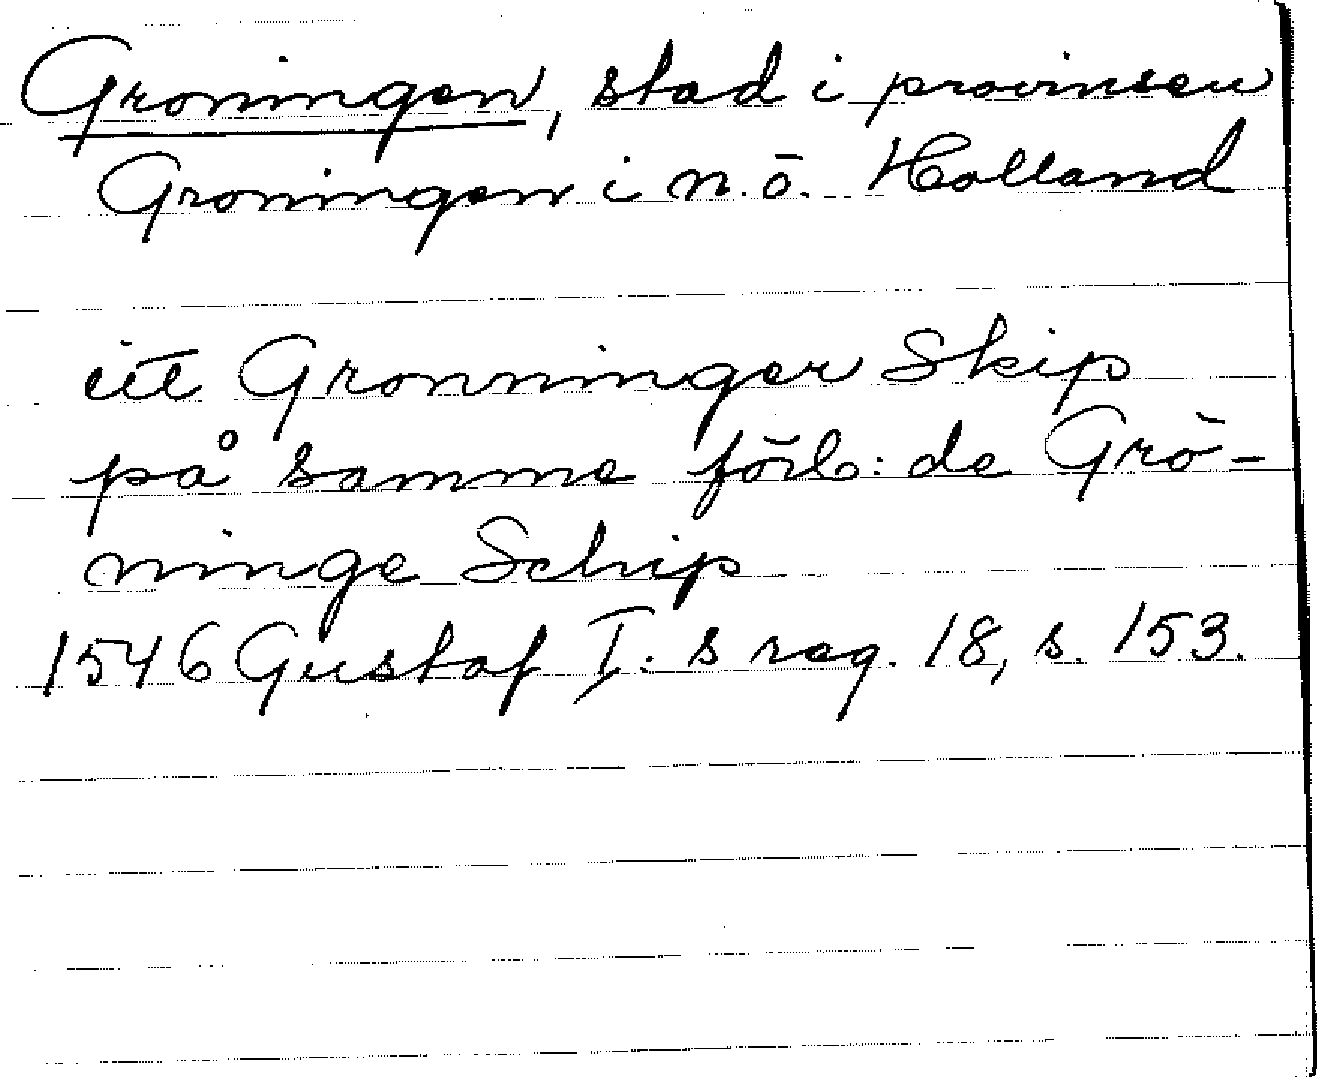 Groningen, stad i provinsen
Groningen i n.ö. Holland
itt Gronninger Skip
på samma förb: de Grö-
ninge Schip
1546 Gustaf I: s reg. 18, s. 153.